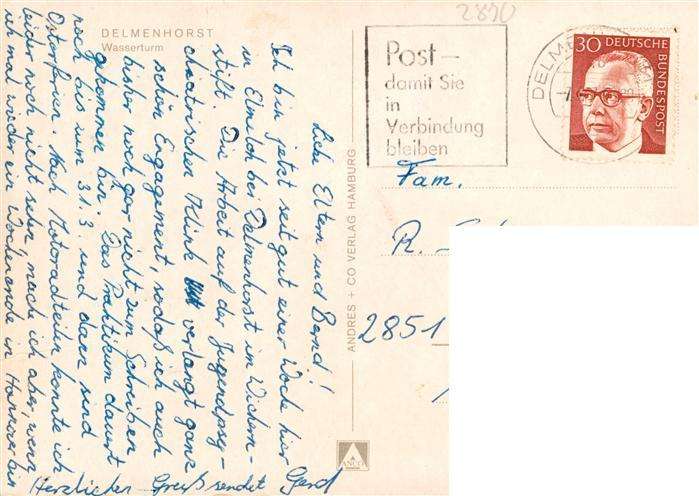 DELMENHORST
Wasserturm
2890
Post –
damit Sie
in
Verbindung
bleiben
DELMEN
30 DEUTSCHE
BUNDESPOST
Liebe Eltern und Bernd!
Ich bin jetzt seit gut einer Woche hier
in Elmeloh bei Delmenhorst im Wichern-
stift. Die Arbeit auf der Jugendpsy-
chiatrischen Klinik verlangt ganz
schön Engagement, sodaß ich auch
bisher noch gar nicht zum Schreiben
gekommen bin. Das Praktikum dauert
noch bis zum 31.3. und dann sind
Osterferien. Nach Motoradteilen konnte ich
leider noch nicht sehn, mache ich aber, wenn
ich mal wieder ein Wochenende in Hannover bin
Herzlichen Gruß sendet Gerd
ANDRES + CO VERLAG HAMBURG
ANCO
Fam.
R.
2851